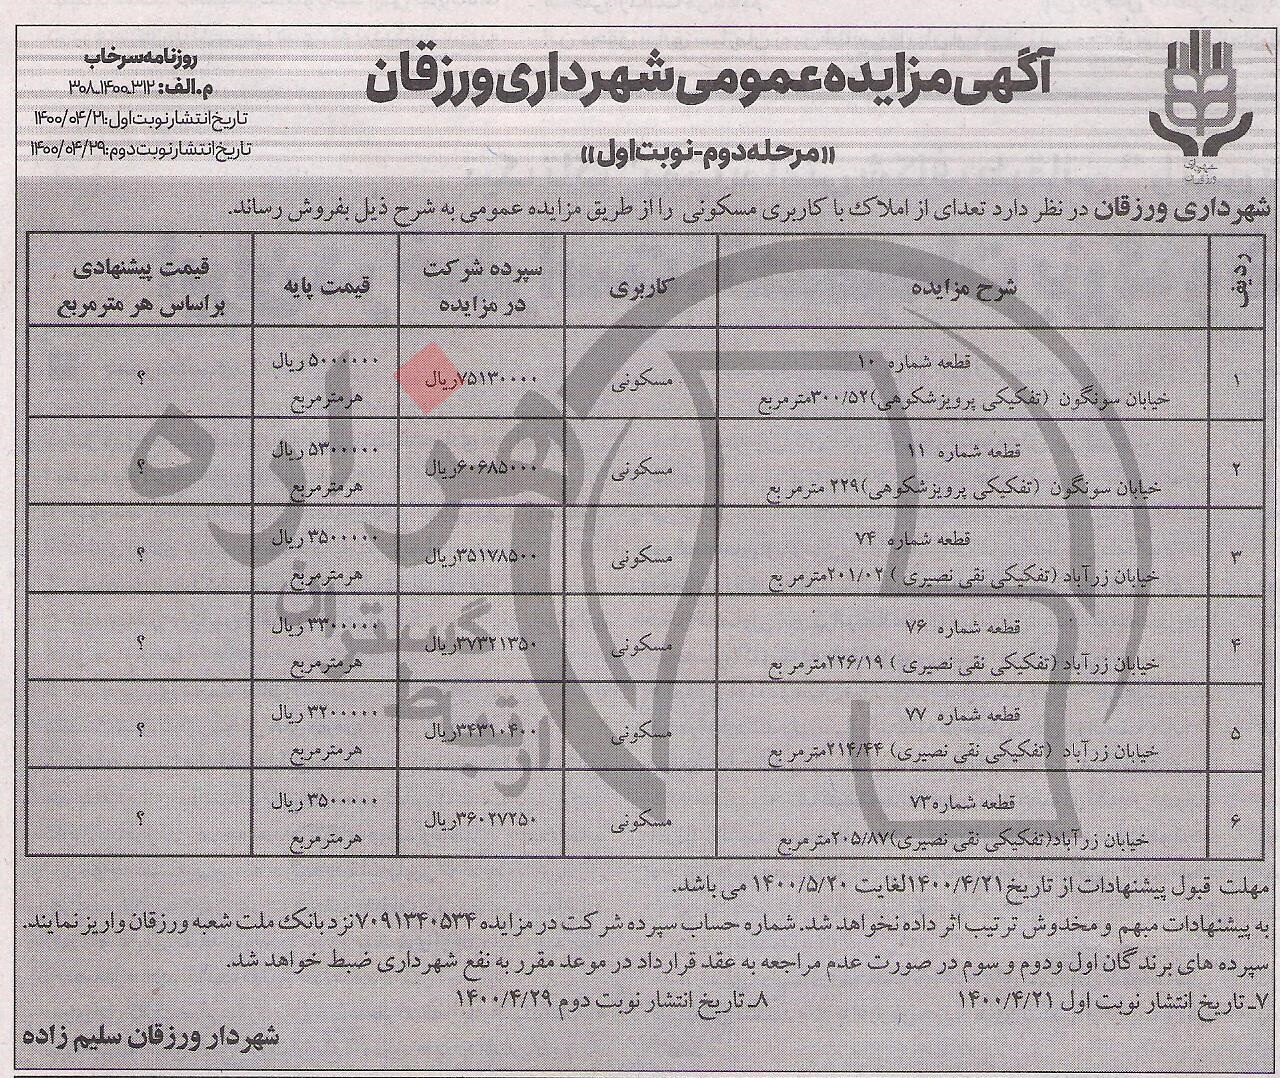 روزنامه سرخاب
م.الف: ۳۱۲-۱۴۰۰-۳۰۸
تاریخ انتشار نوبت اول: ۱۴۰۰/۰۴/۲۱
تاریخ انتشار نوبت دوم: ۱۴۰۰/۰۴/۲۹
آگهی مزایده عمومی شهرداری ورزقان
«مرحله دوم-نوبت اول»
شهرداری ورزقان
شهرداری ورزقان در نظر دارد تعدای از املاک با کاربری مسکونی را از طریق مزایده عمومی به شرح ذیل بفروش رساند.
ردیف شرح مزایده کاربری سپرده شرکت در مزایده قیمت پایه قیمت پیشنهادی براساس هر مترمربع
۱ قطعه شماره ۱۰ خیابان سونگون (تفکیکی پرویزشکوهی)۳۰۰/۵۲مترمربع مسکونی ۷۵۱۳۰۰۰۰ریال ۵۰۰۰۰۰۰ ریال هرمترمربع ؟
۲ قطعه شماره ۱۱ خیابان سونگون (تفکیکی پرویزشکوهی)۲۲۹ مترمر بع مسکونی ۶۰۶۸۵۰۰۰ریال ۵۳۰۰۰۰۰ ریال هرمترمربع ؟
۳ قطعه شماره ۷۴ خیابان زرآباد (تفکیکی نقی نصیری )۲۰۱/۰۲مترمر بع مسکونی ۳۵۱۷۸۵۰۰ریال ۳۵۰۰۰۰۰ ریال هرمترمربع ؟
۴ قطعه شماره ۷۶ خیابان زرآباد (تفکیکی نقی نصیری )۲۲۶/۱۹مترمر بع مسکونی ۳۷۳۲۱۳۵۰ریال ۳۳۰۰۰۰۰ ریال هرمترمربع ؟
۵ قطعه شماره ۷۷ خیابان زرآباد (تفکیکی نقی نصیری)۲۱۴/۴۴مترمر بع مسکونی ۳۴۳۱۰۴۰۰ریال ۳۲۰۰۰۰۰ ریال هرمترمربع ؟
۶ قطعه شماره۷۳ خیابان زرآباد(تفکیکی نقی نصیری)۲۰۵/۸۷مترمربع مسکونی ۳۶۰۲۷۲۵۰ریال ۳۵۰۰۰۰۰ ریال هرمترمربع ؟
مهلت قبول پیشنهادات از تاریخ۱۴۰۰/۴/۲۱لغایت ۱۴۰۰/۵/۲۰ می باشد.
به پیشنهادات مبهم و مخدوش ترتیب اثر داده نخواهد شد. شماره حساب سپرده شرکت در مزایده ۷۰۹۱۳۴۰۵۳۴نزد بانک ملت شعبه ورزقان واریز نمایند.
سپرده های برندگان اول ودوم و سوم در صورت عدم مراجعه به عقد قرارداد در موعد مقرر به نفع شهرداری ضبط خواهد شد.
۷ـ تاریخ انتشار نوبت اول ۱۴۰۰/۴/۲۱ ۸ـ تاریخ انتشار نوبت دوم ۱۴۰۰/۴/۲۹
شهردار ورزقان سلیم زاده
هزاره
گستران
ارتباط